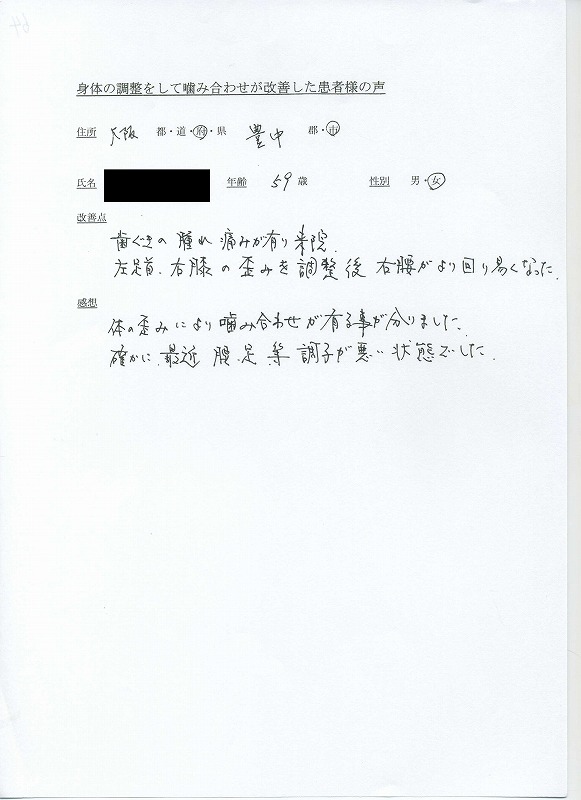 身体の調整をして噛み合わせが改善した患者様の声
住所 大阪 都・道・府・県 豊中 郡・市
氏名 年齢 59歳 性別 男・女
改善点
歯ぐきの腫れ痛みが有り来院.
左足首、右膝の歪みを調整後右腰がより回り易くなった.
感想
体の歪みにより噛み合わせが有る事が分りました.
確かに最近 腰、足、等 調子が悪い状態でした.